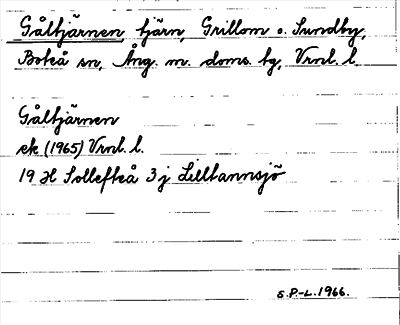 Gåltjärnen, tjärn, Grillom o. Sundby,
Boteå sn, Ång. m. doms. tg, Vrnl. l.
Gåltjärnen
ek (1965) Vrnl. l.
19 H Sollefteå 3 j Lilltannsjö
S.P.-L. 1966.